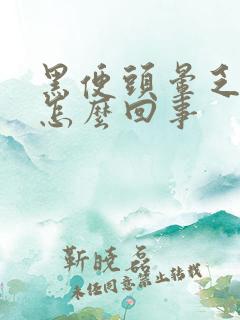 黑便頭暈乏
怎麼回事
靳曉磊
未经同意禁止转载